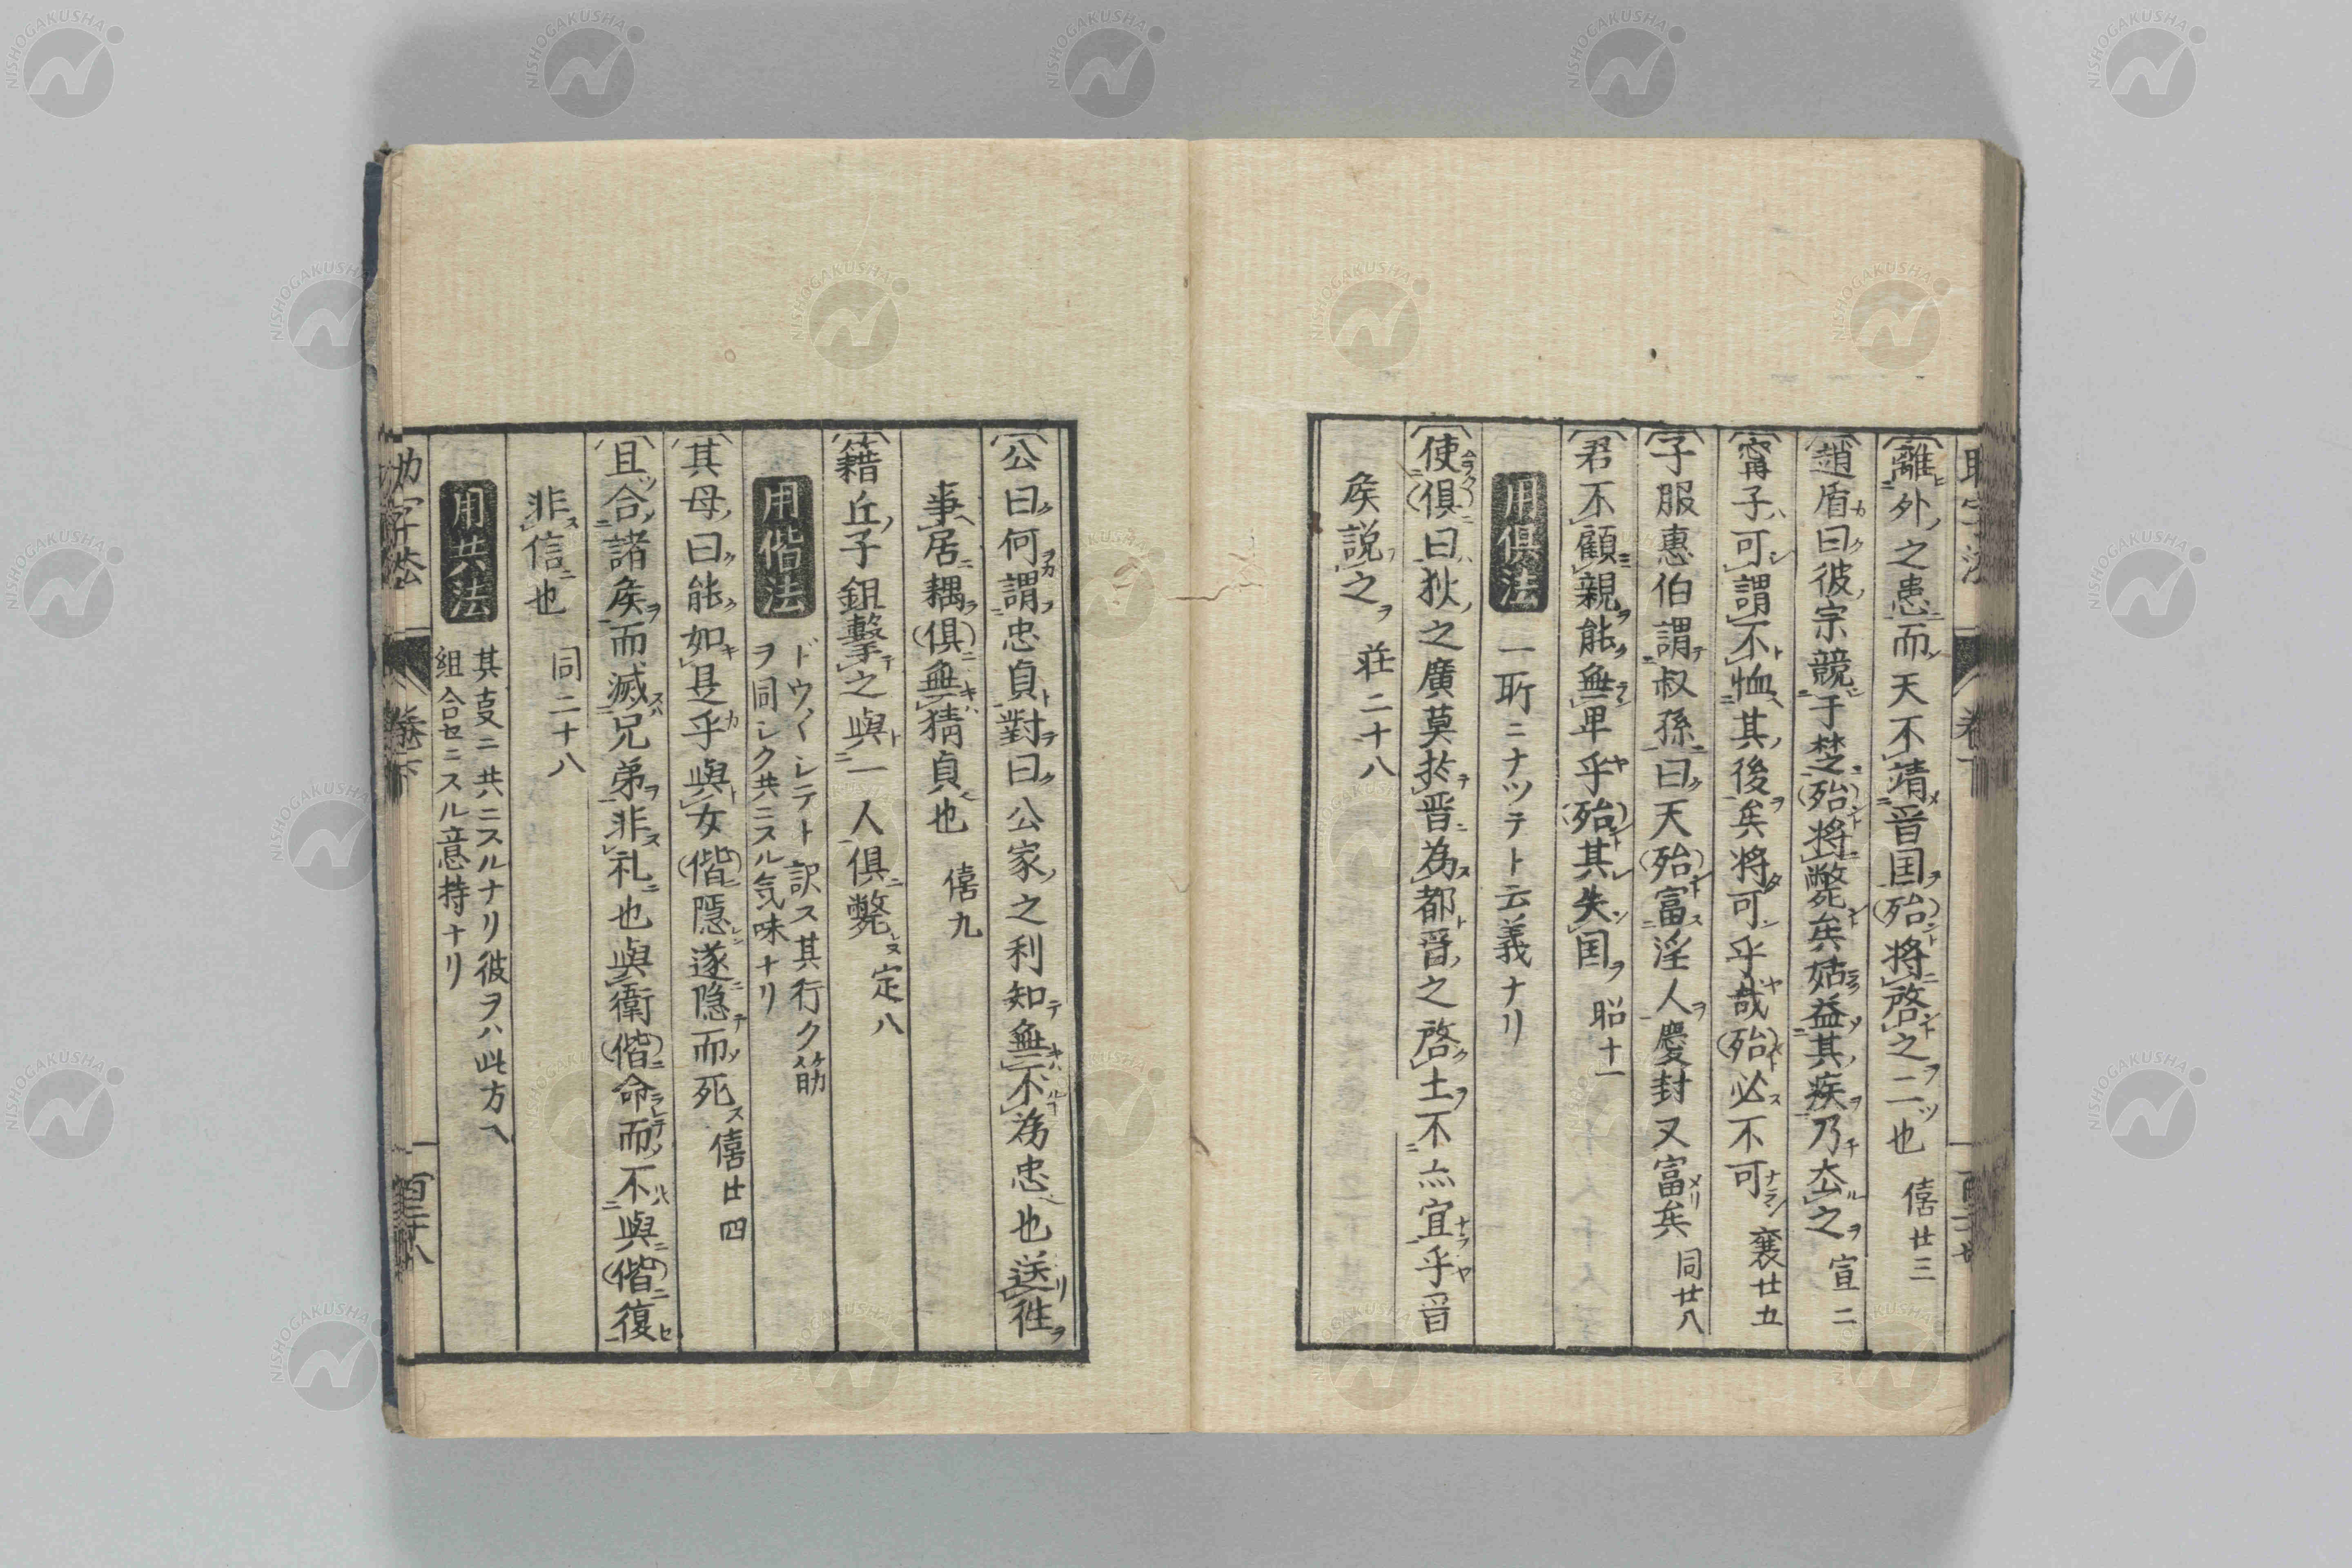 離外之患而天不靖晋国殆将啓之二也 僖廿三
趙盾曰彼宗競于楚殆将斃矣姑益其疾乃厺之 宣二
甯子可謂不恤其後矣将可乎哉殆必不可 襄廿五
子服惠伯謂叔孫曰天殆富淫人慶封又富矣 同廿八
君不顧親能無卑乎殆其失国 昭十一
用俱法 一所ニナツテト云義ナリ
使俱曰狄之廣莫於晋為都晋之啓土不亦宜乎晋
矦説之 荘二十八
公曰何謂忠貞對曰公家之利知無不為忠也送徃
事居耦俱無猜貞也 僖九
籍丘子鉏擊之與一人俱斃 定八
用偕法 ドウ〱シテト訳ス其行ク筋
ヲ同シク共ニスル気味ナリ
其母曰能如是乎與女偕隠遂隠而死 僖廿四
且合諸矦而滅兄弟非礼也與衛偕命而不與偕復
非信也 同二十八
用共法 其叓ニ共ニスルナリ彼ヲハ此方ヘ
組合セニスル意持ナリ
助字法 巻下 百三十八